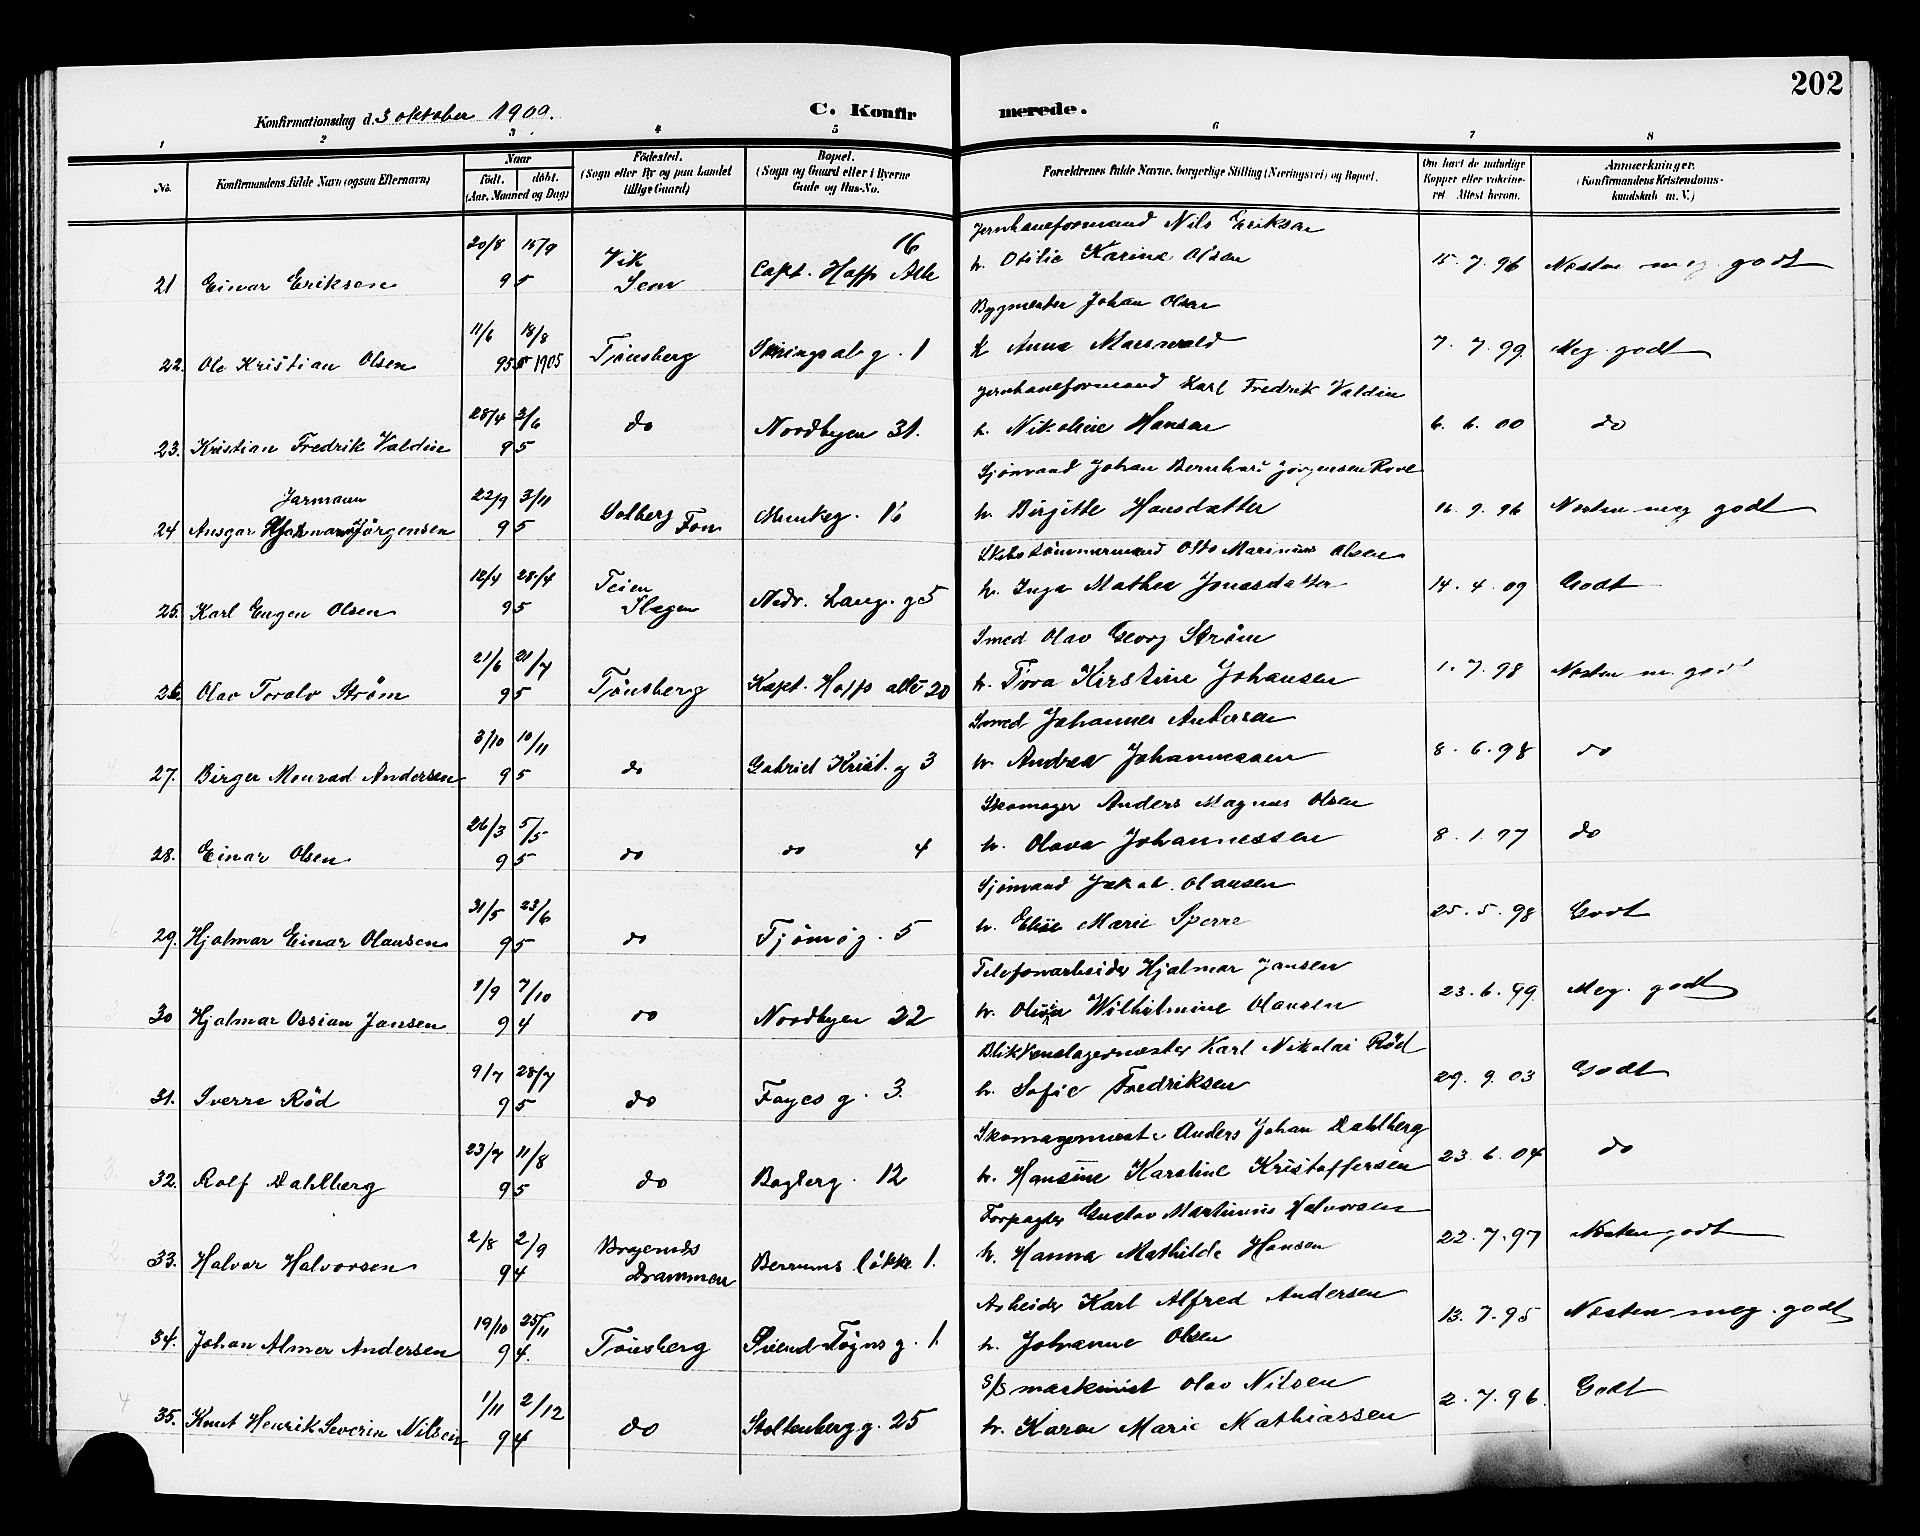 202
Konfirmationsdag d. 3 oktober 1909.
C. Konfir
merede.
1 2 3 4 5 6 7 8
No. Konfirmandens fulde Navn (ogsaa Efternavn) Naar født. døbt. (Aar, Maaned og Dag) Fødested. (Sogn eller By og paa Landet tillige Gaard) Bopæl. (Sogn og Gaard eller i Byerne Gade og Hus-No. Forældrenes fulde Navne, borgerlige Stilling (Næringsvei) og Bopæl. Om havt de naturlige Kopper eller vaccineret. Attest herom. Anmærkninger. (Konfirmandens Kristendomskundskab m. V.)
20/8 15/9 Vik 16 Jernbaneformand Nils Eriksen
21 Einar Eriksen 95 Sem Capt. Hoffs Alle h. Otilie Karine Olsen 15.7.96 Næsten meg. godt
11/6 18/8 Bygmester Johan Olsen
22. Ole Kristian Olsen 95 1905 Tønsberg Skringsal g. 1 h. Anna 7.7.99 Meg. godt
28/4 3/6 Jernbaneformand Karl Fredrik Valdin
23. Kristian Fredrik Valdin 95 do Nordbyen 31. h. Nikoline Hansen 6.6.00 do
Jarmann 22/9 3/11 Sjømand Johan Bernhard Jørgensen
24 Ansgar Hjalmar Jørgensen 95 Solberg Fon Munkeg. 16 h. Birgitte Hansdatter 16.9.96 Næsten meg godt
12/4 28/4 Teien Skibstømmermand Otto Marinius Olsen
25. Karl Eugen Olsen 95 Slagen Nedr. Lang. g 5 h. Inga Mathea Jonasdatter 14.4.09 Godt
21/6 21/7 Smed Olav Georg Strøm
26. Olav Toralv Strøm 95 Tønsberg Kapt. Hoffs alle 20 h. Tora Kirstine Johansen 1.7.98 Næsten m. godt
3/10 10/11 Smed Johannes Andersen
27. Birger Monrad Andersen 95 do Gabriel Krist. g 3 h. Andrea Johannessen 8.6.98 do
26/3 5/5 Skomager Anders Magnus Olsen
28. Einar Olsen 95 do do 4 h. Olava Johannessen 8.1.97 do
31/5 23/6 Sjømand Jakob Olausen
29. Hjalmar Einar Olausen 95 do Tjømøg. 5 h. Elise Marie Sperre 25.5.98 Godt
1/9 7/10 Telefonarbeider Hjalmar Jansen
30 Hjalmar Ossian Jansen 94 do Nordbyen 22 h. Olivia Wilhelmine Olausen 23.6.99 Meg. godt
9/7 28/7 Blikkenslagermester Karl Nikolai Rød
31. Sverre Rød 95 do Fayes g. 3. h. Sofie Fredriksen 29.9.03 Godt
23/7 11/8 Skomagermester Anders Johan Dahlberg
32. Rolf Dahlberg 95 do Baglerg. 12 h. Hansine Karoline Kristoffersen 23.6.04 do
2/8 2/9 Bragernæs Forpagter Gustav Martinius Halvorsen
33. Halvor Halvorsen 94 Drammen Berrums løkke 1. h. Hanna Mathilde Hansen 22.7.97 Næsten godt
19/10 25/11 Arbeider Karl Alfred Andersen
34. Johan Almer Andersen 94. Tønsberg Svend Føyns g. 1. h. Johanne Olsen 13.7.95 Næsten meg. godt
1/11 2/12 S/S maskinist Olav Nilsen
35. Knut Henrik Severin Nilsen 94 do Stoltenberg.g. 25 h. Karen Marie Mathiassen 2.7.96. Godt